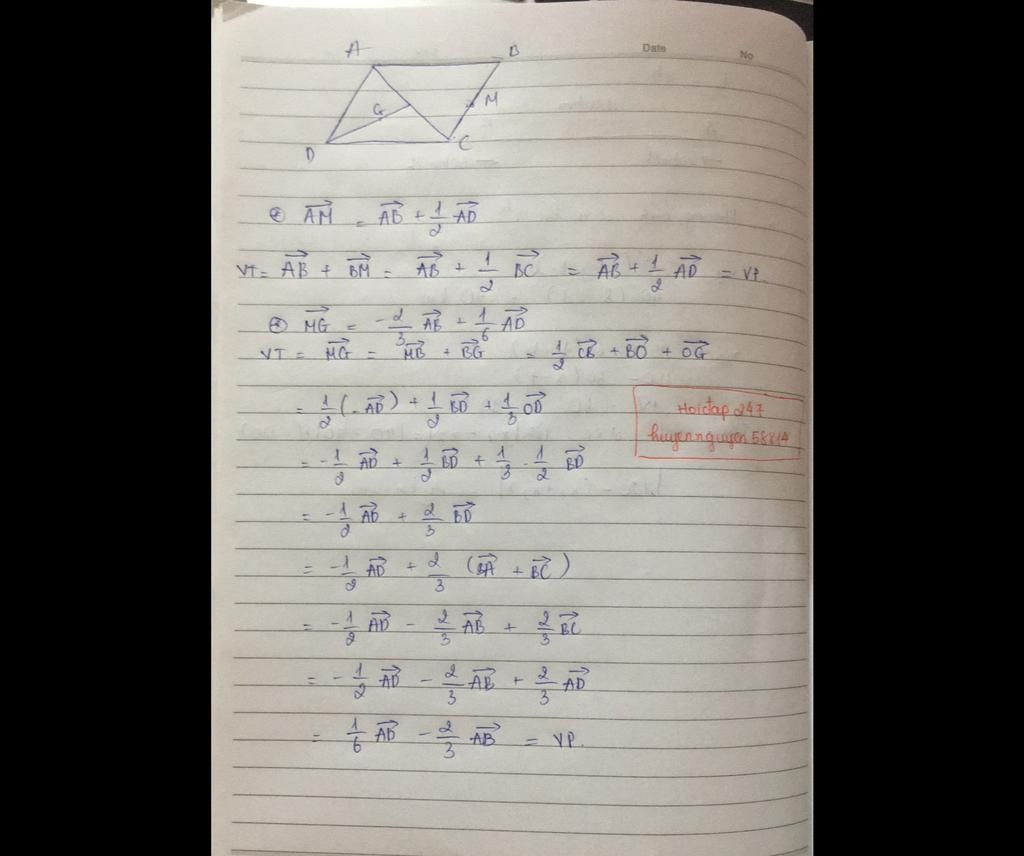 Date No
A B
G M
D C
⊛ $\overrightarrow{AM} = \overrightarrow{AB} + \frac{1}{2} \overrightarrow{AD}$
VT = $\overrightarrow{AB} + \overrightarrow{BM} = \overrightarrow{AB} + \frac{1}{2} \overrightarrow{BC} = \overrightarrow{AB} + \frac{1}{2} \overrightarrow{AD}$ = VP.
⊛ $\overrightarrow{MG} = -\frac{2}{3} \overrightarrow{AB} + \frac{1}{6} \overrightarrow{AD}$
VT = $\overrightarrow{MG} = \overrightarrow{MB} + \overrightarrow{BG} = \frac{1}{2} \overrightarrow{CB} + \overrightarrow{BO} + \overrightarrow{OG}$
$= \frac{1}{2} (-\overrightarrow{AD}) + \frac{1}{2} \overrightarrow{BD} + \frac{1}{3} \overrightarrow{OD}$
Hoidap 247
huyennguyen 58814
$= -\frac{1}{2} \overrightarrow{AD} + \frac{1}{2} \overrightarrow{BD} + \frac{1}{3} \cdot \frac{1}{2} \overrightarrow{BD}$
$= -\frac{1}{2} \overrightarrow{AD} + \frac{2}{3} \overrightarrow{BD}$
$= -\frac{1}{2} \overrightarrow{AD} + \frac{2}{3} (\overrightarrow{BA} + \overrightarrow{BC})$
$= -\frac{1}{2} \overrightarrow{AD} - \frac{2}{3} \overrightarrow{AB} + \frac{2}{3} \overrightarrow{BC}$
$= -\frac{1}{2} \overrightarrow{AD} - \frac{2}{3} \overrightarrow{AB} + \frac{2}{3} \overrightarrow{AD}$
$= \frac{1}{6} \overrightarrow{AD} - \frac{2}{3} \overrightarrow{AB}$ = VP.